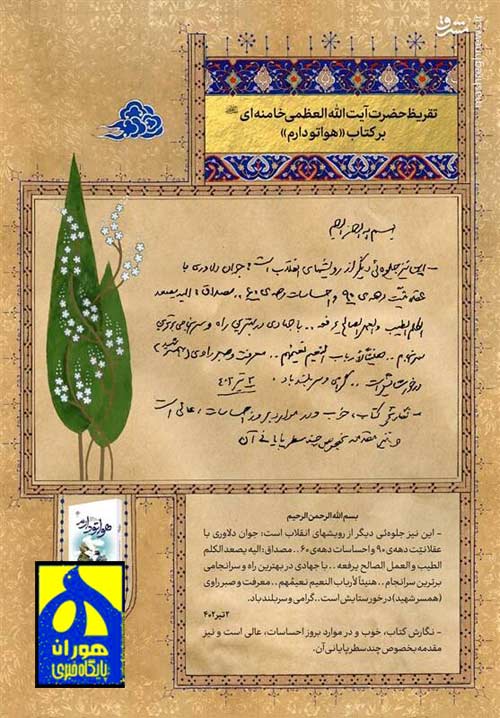 مشرق
mashreghnews.ir
تقریظ حضرت آیت الله العظمی خامنه‌ای
بر کتاب «هواتو دارم»
بسم الله الرحمن الرحیم
- این نیز جلوه‌ئی دیگر از رویشهای انقلاب است: جوان دلاوری با
عقلانیّت دهه‌ی ۹۰ و احساسات دهه‌ی ۶۰ .. مصداق: الیه یصعد
الکلم الطیب والعمل الصالح یرفعه .. با جهادی در بهترین راه و سرانجامی برترین
سرانجام .. هنیئاً لأرباب النعیم نعیمُهم .. معرفت و صبر راوی (همسر شهید)
در خور ستایش است .. گرامی و سربلند باد.
۲ تیر ۴۰۲
- نگارش کتاب، خوب و در موارد بروز احساسات، عالی است
و نیز مقدمه بخصوص چند سطر پایانی آن
هواتو دارم
بسم‌الله الرحمن الرحیم
- این نیز جلوه‌ئی دیگر از رویشهای انقلاب است: جوان دلاوری با
عقلانیّت دهه‌ی ۹۰ و احساسات دهه‌ی ۶۰ .. مصداق: الیه یصعد الکلم
الطیب و العمل الصالح یرفعه .. با جهادی در بهترین راه و سرانجامی
برترین سرانجام .. هنیئاً لأرباب النعیم نعیمُهم .. معرفت و صبر راوی
(همسر شهید) در خور ستایش است .. گرامی و سربلند باد.
۲ تیر ۴۰۲
- نگارش کتاب، خوب و در موارد بروز احساسات، عالی است و نیز
مقدمه بخصوص چند سطر پایانی آن.
هوران
پایگاه خبری